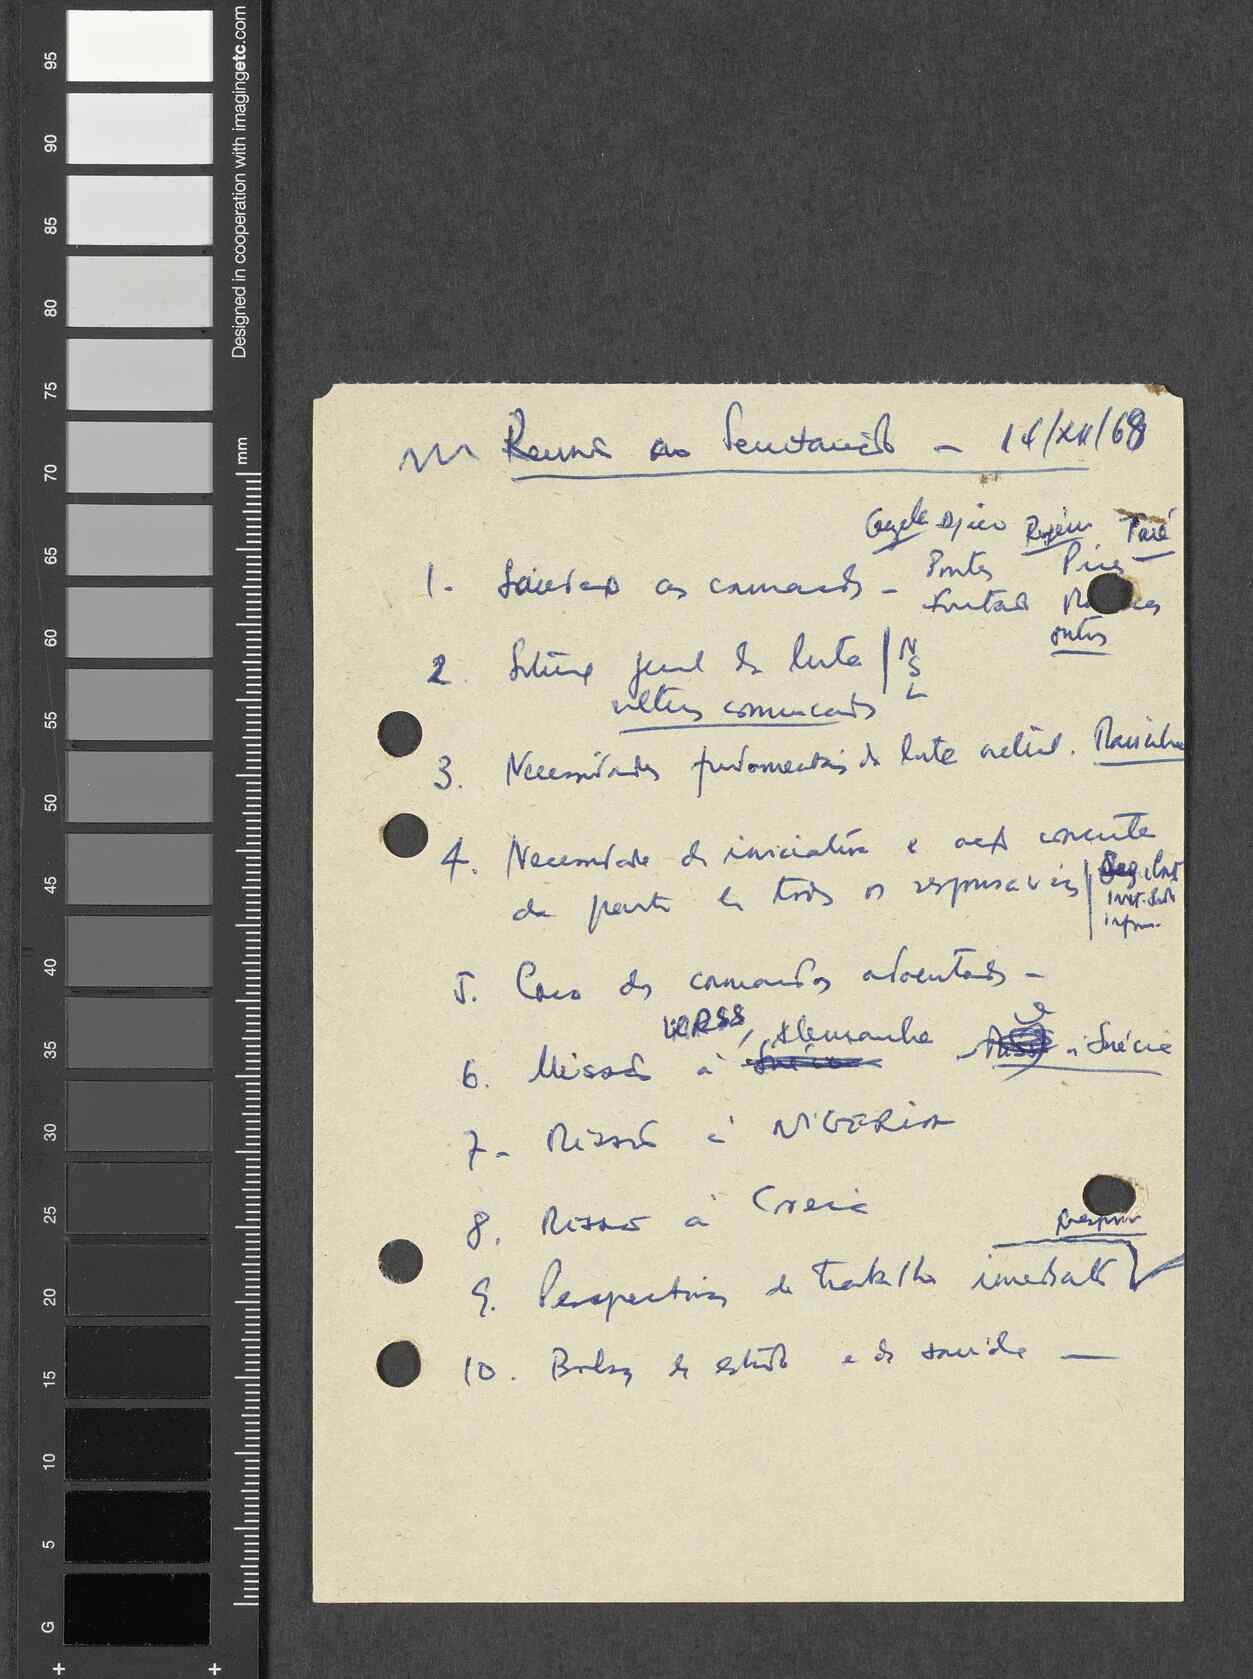 95
90
85
80
75
70
65
60
55
50
45
40
35
30
25
20
15
10
5
G
Designed in cooperation with imagingetc.com
mm
Reunião do Secretariado - 14/XII/68
1. aos camaradas -
Pontes Pires
outros
2. geral da luta | N
S
L
ultimos comunicados
3. Necessidades fundamentais da luta actual.
4. Necessidade de iniciativa e acção concreta
da parte de todos os responsaveis
5. Caso dos camaradas adoentados -
URSS, Alemanha
6. Missão à Suécia e Suécia
7- Missão à NIGERIA
8. Missão à Coreia
9. Perspectivas de trabalho imediato
10. Bolsas de estudo e de saúde —